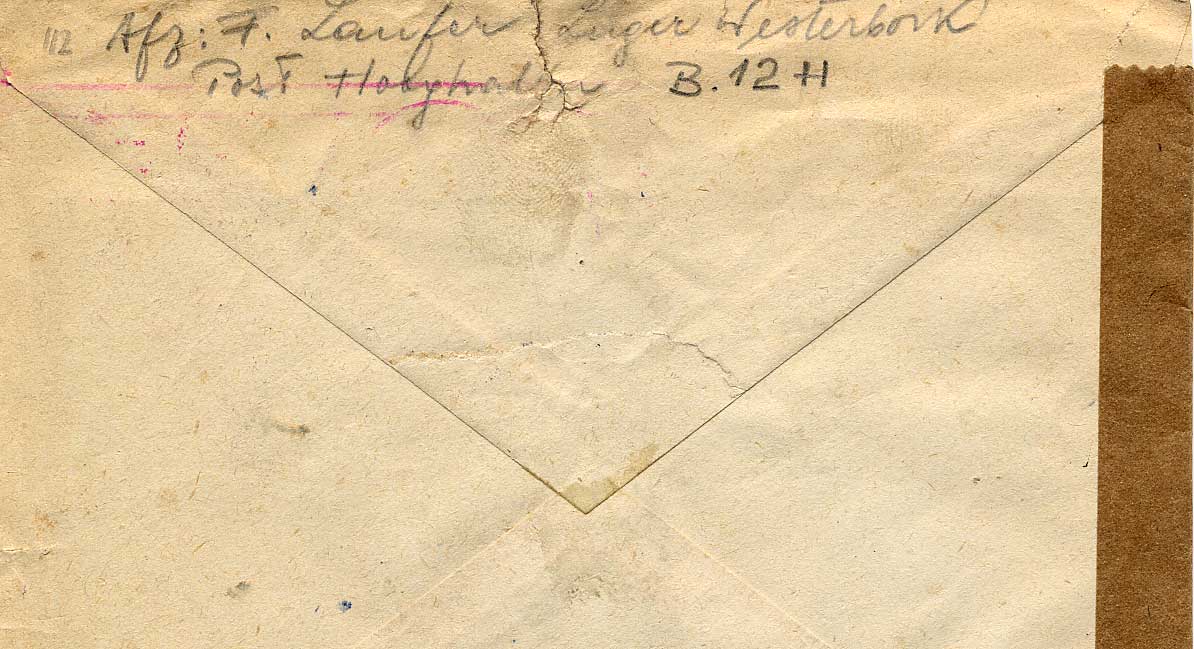 112 Afz: F. Laufer Lager Westerbork
Post Hooghalen B.12 H